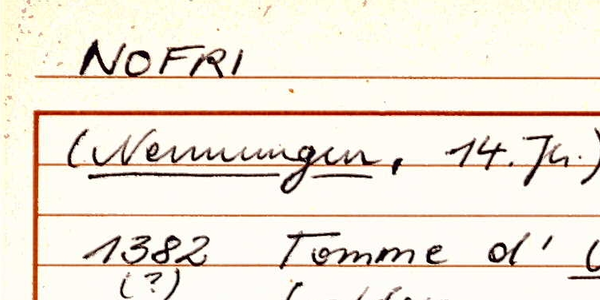 NOFRI
(Nennungen, 14. Jh.)
1382 Tomme d'
(?)